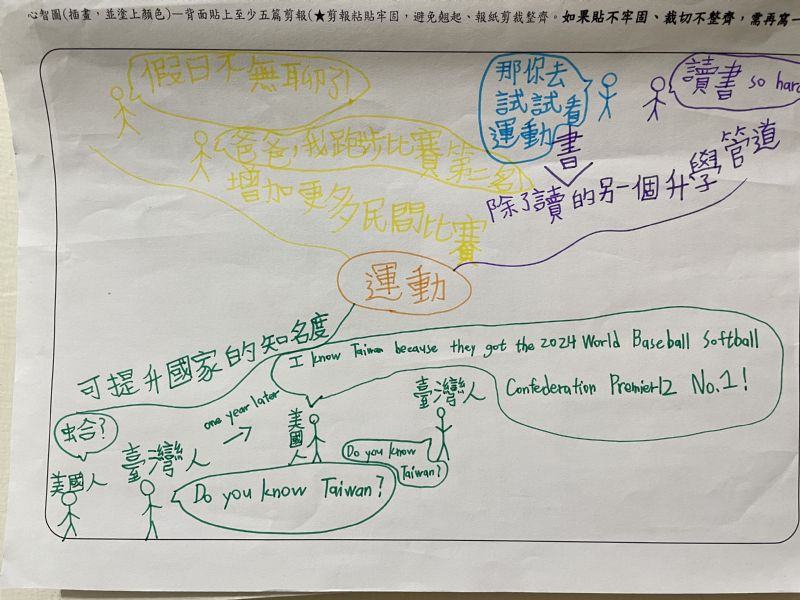 心智圖(插畫，並塗上顏色)—背面貼上至少五篇剪報(★剪報粘貼牢固，避免翹起、報紙剪裁整齊。如果貼不牢固、裁切不整齊，需再寫一
假日不無聊了!
爸爸,我跑步比賽第二名
增加更多民間比賽
那你去
試試看
運動
讀書 so hard
書
除了讀的另一個升學管道
運動
可提升國家的知名度
I know Taiwan because they got the 2024 World Baseball Softball
Confederation Premier12 No.1!
虫合?
美國人
臺灣人
Do you know Taiwan?
one year later
美國人
Do you know
Taiwan?
臺灣人